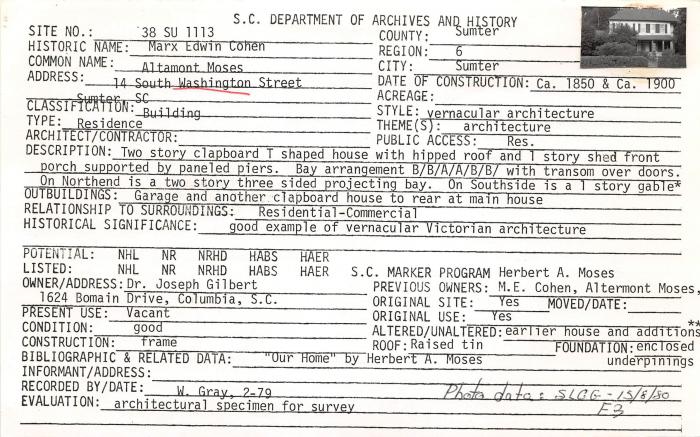 S.C. DEPARTMENT OF ARCHIVES AND HISTORY
SITE NO.: 38 SU 1113 COUNTY: Sumter
HISTORIC NAME: Marx Edwin Cohen REGION: 6
COMMON NAME: Altamont Moses CITY: Sumter
ADDRESS: 14 South Washington Street DATE OF CONSTRUCTION: Ca. 1850 & Ca. 1900
Sumter, SC ACREAGE:
CLASSIFICATION: Building STYLE: vernacular architecture
TYPE: Residence THEME(S): architecture
ARCHITECT/CONTRACTOR: PUBLIC ACCESS: Res.
DESCRIPTION: Two story clapboard T shaped house with hipped roof and 1 story shed front
porch supported by paneled piers. Bay arrangement B/B/A/A/B/B/ with transom over doors.
On Northend is a two story three sided projecting bay. On Southside is a 1 story gable*
OUTBUILDINGS: Garage and another clapboard house to rear at main house
RELATIONSHIP TO SURROUNDINGS: Residential-Commercial
HISTORICAL SIGNIFICANCE: good example of vernacular Victorian architecture
POTENTIAL: NHL NR NRHD HABS HAER
LISTED: NHL NR NRHD HABS HAER S.C. MARKER PROGRAM Herbert A. Moses
OWNER/ADDRESS: Dr. Joseph Gilbert PREVIOUS OWNERS: M.E. Cohen, Altermont Moses,
1624 Bomain Drive, Columbia, S.C. ORIGINAL SITE: Yes MOVED/DATE:
PRESENT USE: Vacant ORIGINAL USE: Yes
CONDITION: good ALTERED/UNALTERED: earlier house and additions**
CONSTRUCTION: frame ROOF: Raised tin FOUNDATION: enclosed
BIBLIOGRAPHIC & RELATED DATA: "Our Home" by Herbert A. Moses underpinings
INFORMANT/ADDRESS:
RECORDED BY/DATE: W. Gray, 2-79 Photo data: SLGG - 15/8/80
EVALUATION: architectural specimen for survey F3